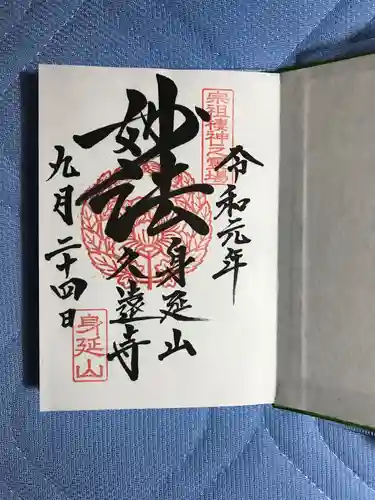 宗祖棲神之霊場
令和元年
妙法
身延山
久遠寺
九月二十四日
身延山